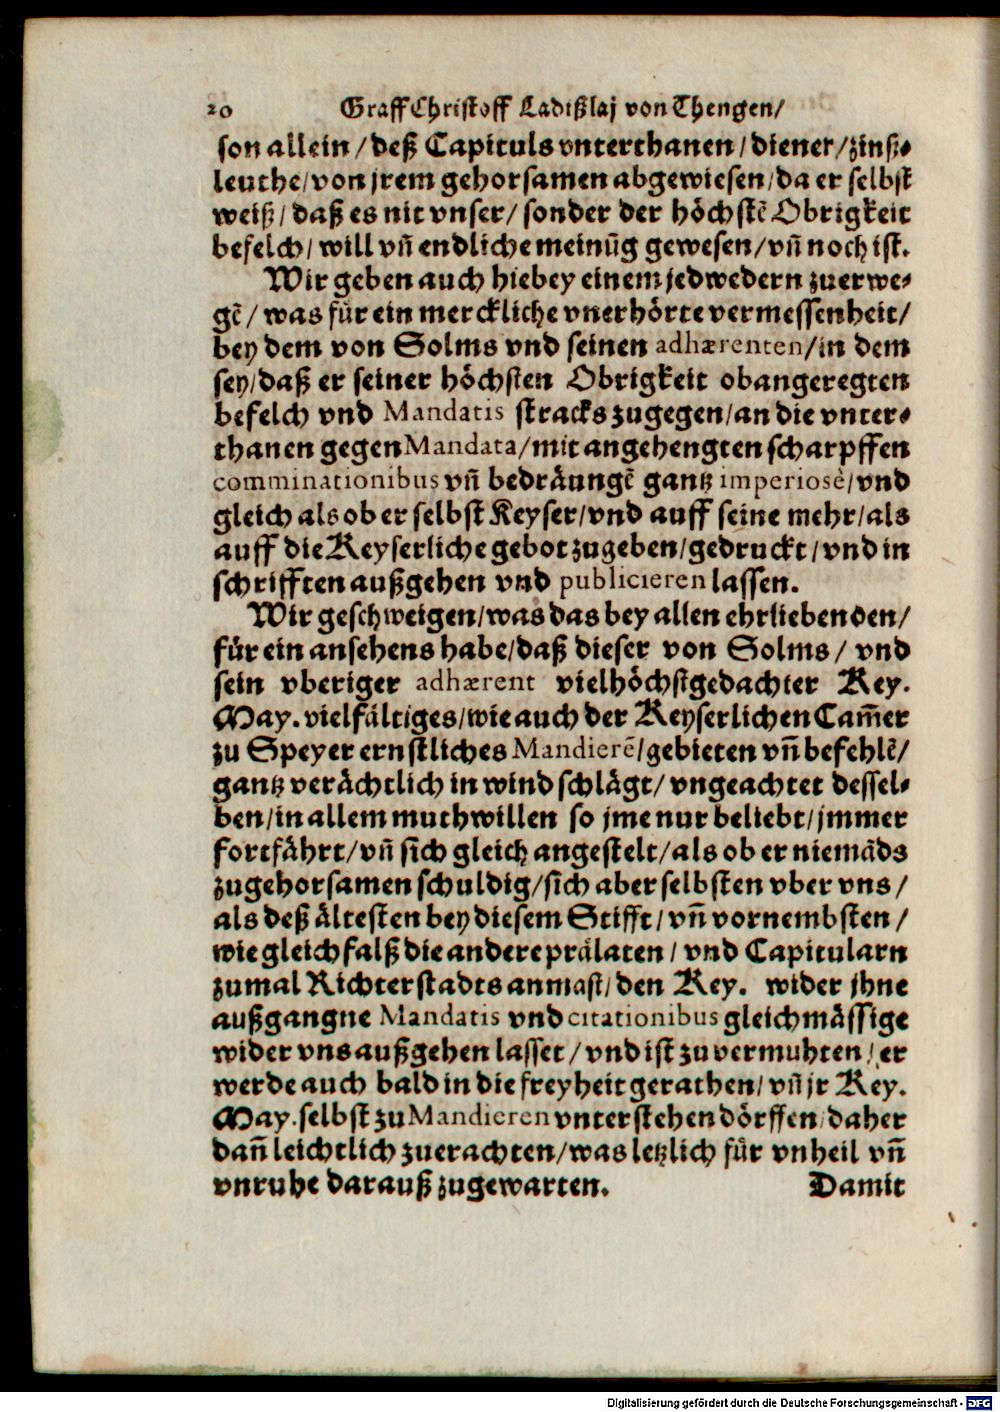 20 Graff Christoff Ladißlaj von Thengen/
son allein/deß Capituls vnterthanen/diener/zinß-
leuthe/von jrem gehorsamen abgewiesen/da er selbst
weiß/daß es nit vnser/sonder der höchstẽ Obrigkeit
befelch/will vñ endliche meinũg gewesen/vñ noch ist.
Wir geben auch hiebey einem jedwedern zuerwe-
gẽ/was für ein merckliche vnerhörte vermessenheit/
bey dem von Solms vnd seinen adhærenten/in dem
sey/daß er seiner höchsten Obrigkeit obangeregten
befelch vnd Mandatis stracks zugegen/an die vnter-
thanen gegen Mandata/mit angehengten scharpffen
comminationibus vñ bedräungẽ gantz imperiosè/vnd
gleich als ob er selbst Keyser/vnd auff seine mehr/als
auff die Keyserliche gebot zugeben/gedruckt/vnd in
schrifften außgehen vnd publicieren lassen.
Wir geschweigen/was das bey allen ehrliebenden/
für ein ansehens habe/daß dieser von Solms/vnd
sein vberiger adhærent vielhöchstgedachter Key.
May. vielfältiges/wie auch der Keyserlichen Cam̃er
zu Speyer ernstliches Mandierẽ/gebieten vñ befehlẽ/
gantz verächtlich in wind schlägt/vngeachtet dessel-
ben/in allem muthwillen so jme nur beliebt/jmmer
fortfährt/vñ sich gleich angestelt/als ob er niemãds
zugehorsamen schuldig/sich aber selbsten vber vns/
als deß ältesten bey diesem Stifft/vñ vornembsten/
wie gleichfalß die andere prälaten/vnd Capitularn
zumal Richterstadts anmast/den Key. wider jhne
außgangne Mandatis vnd citationibus gleichmässige
wider vns außgehen lasset/vnd ist zu vermuhten/er
werde auch bald in die freyheit gerathen/vñ jr Key.
May. selbst zu Mandieren vnterstehen dörffen/daher
dañ leichtlich zuerachten/was letzlich für vnheil vñ
vnruhe darauß zugewarten. Damit
Digitalisierung gefördert durch die Deutsche Forschungsgemeinschaft - DFG